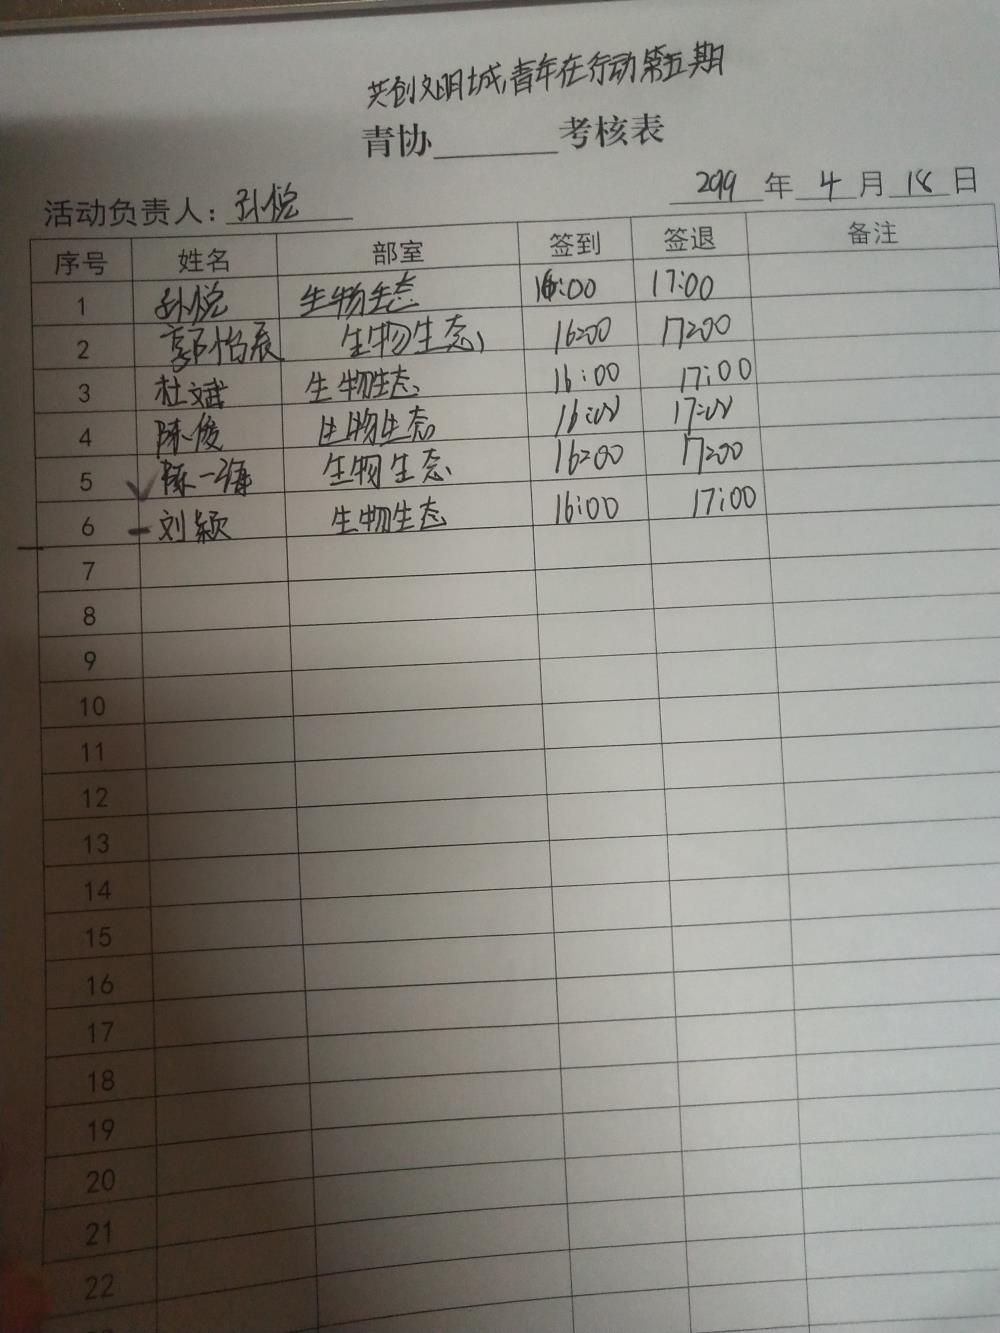 共创文明城,青年在行动第五期
青协______考核表
活动负责人：孙悦 2019年4月18日
序号 姓名 部室 签到 签退 备注
1 孙悦 生物生态 16:00 17:00
2 郭怡辰 生物生态 16:00 17:00
3 杜斌 生物生态 16:00 17:00
4 陈俊 生物生态 16:00 17:00
5 陈一海 生物生态 16:00 17:00
6 刘颖 生物生态 16:00 17:00
7
8
9
10
11
12
13
14
15
16
17
18
19
20
21
22